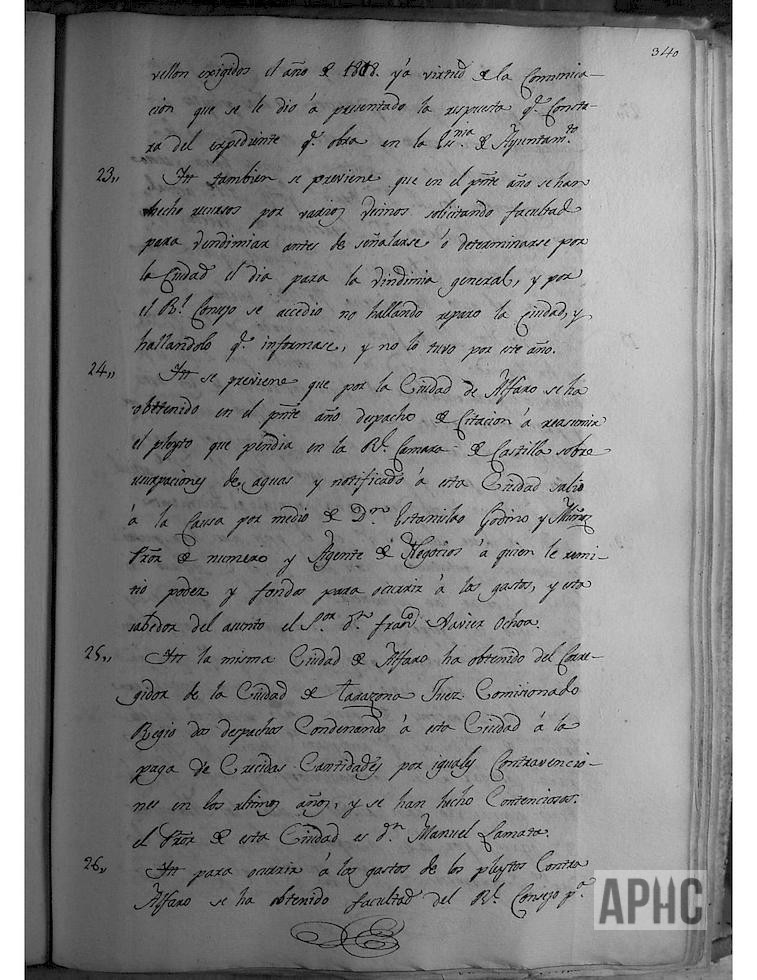 340
vellon exigidos el año de 1818. y a virtud de la Comunica-
cion que se le dio á presentado la respuesta q.e Consta-
ra del expediente q.e obra en la Es.nia de Ayuntam.to
23,, Itt tambien se previene que en el pnte año se han
hecho recursos por varios vecinos solicitando facultad
para vendimiar antes de señalarse ó determinarse por
la Ciudad el dia para la vindimia general, y por
el R.l Consejo se accedio no hallando reparo la Ciudad, y
hallandolo q.e informase, y no lo tuvo por este año.
24,, Itt se previene que por la Ciudad de Alfaro se ha
obttenido en el pnte año despacho de Citacion á reasumir
el pleyto que pendia en la R.l Camara de Castilla sobre
usurpaciones de aguas y notificado á esta Ciudad salio
á la Causa por medio de D.n Estanislao Godino y Muñoz
Pror de numero y Agente de Negocios á quien le remi-
tio poder y fondos para ocurrir á los gastos, y esta
sabedor del asunto el S.or D.n Fran.co Xavier Ochoa.
25,, Itt la misma Ciudad de Alfaro ha obtenido del Corre-
gidor de la Ciudad de Tarazona Juez Comisionado
Regio dos despachos Condenando á esta Ciudad á la
paga de Crecidas Cantidades por iguales Contravencio-
nes en los ultimos años, y se han hecho Contenciosos.
el Pror de esta Ciudad es D.n Manuel Lamata.
26,, Itt para ocurrir á los gastos de los pleytos Contra
Alfaro se ha obtenido facultad del R.l Consejo p.a
APHC